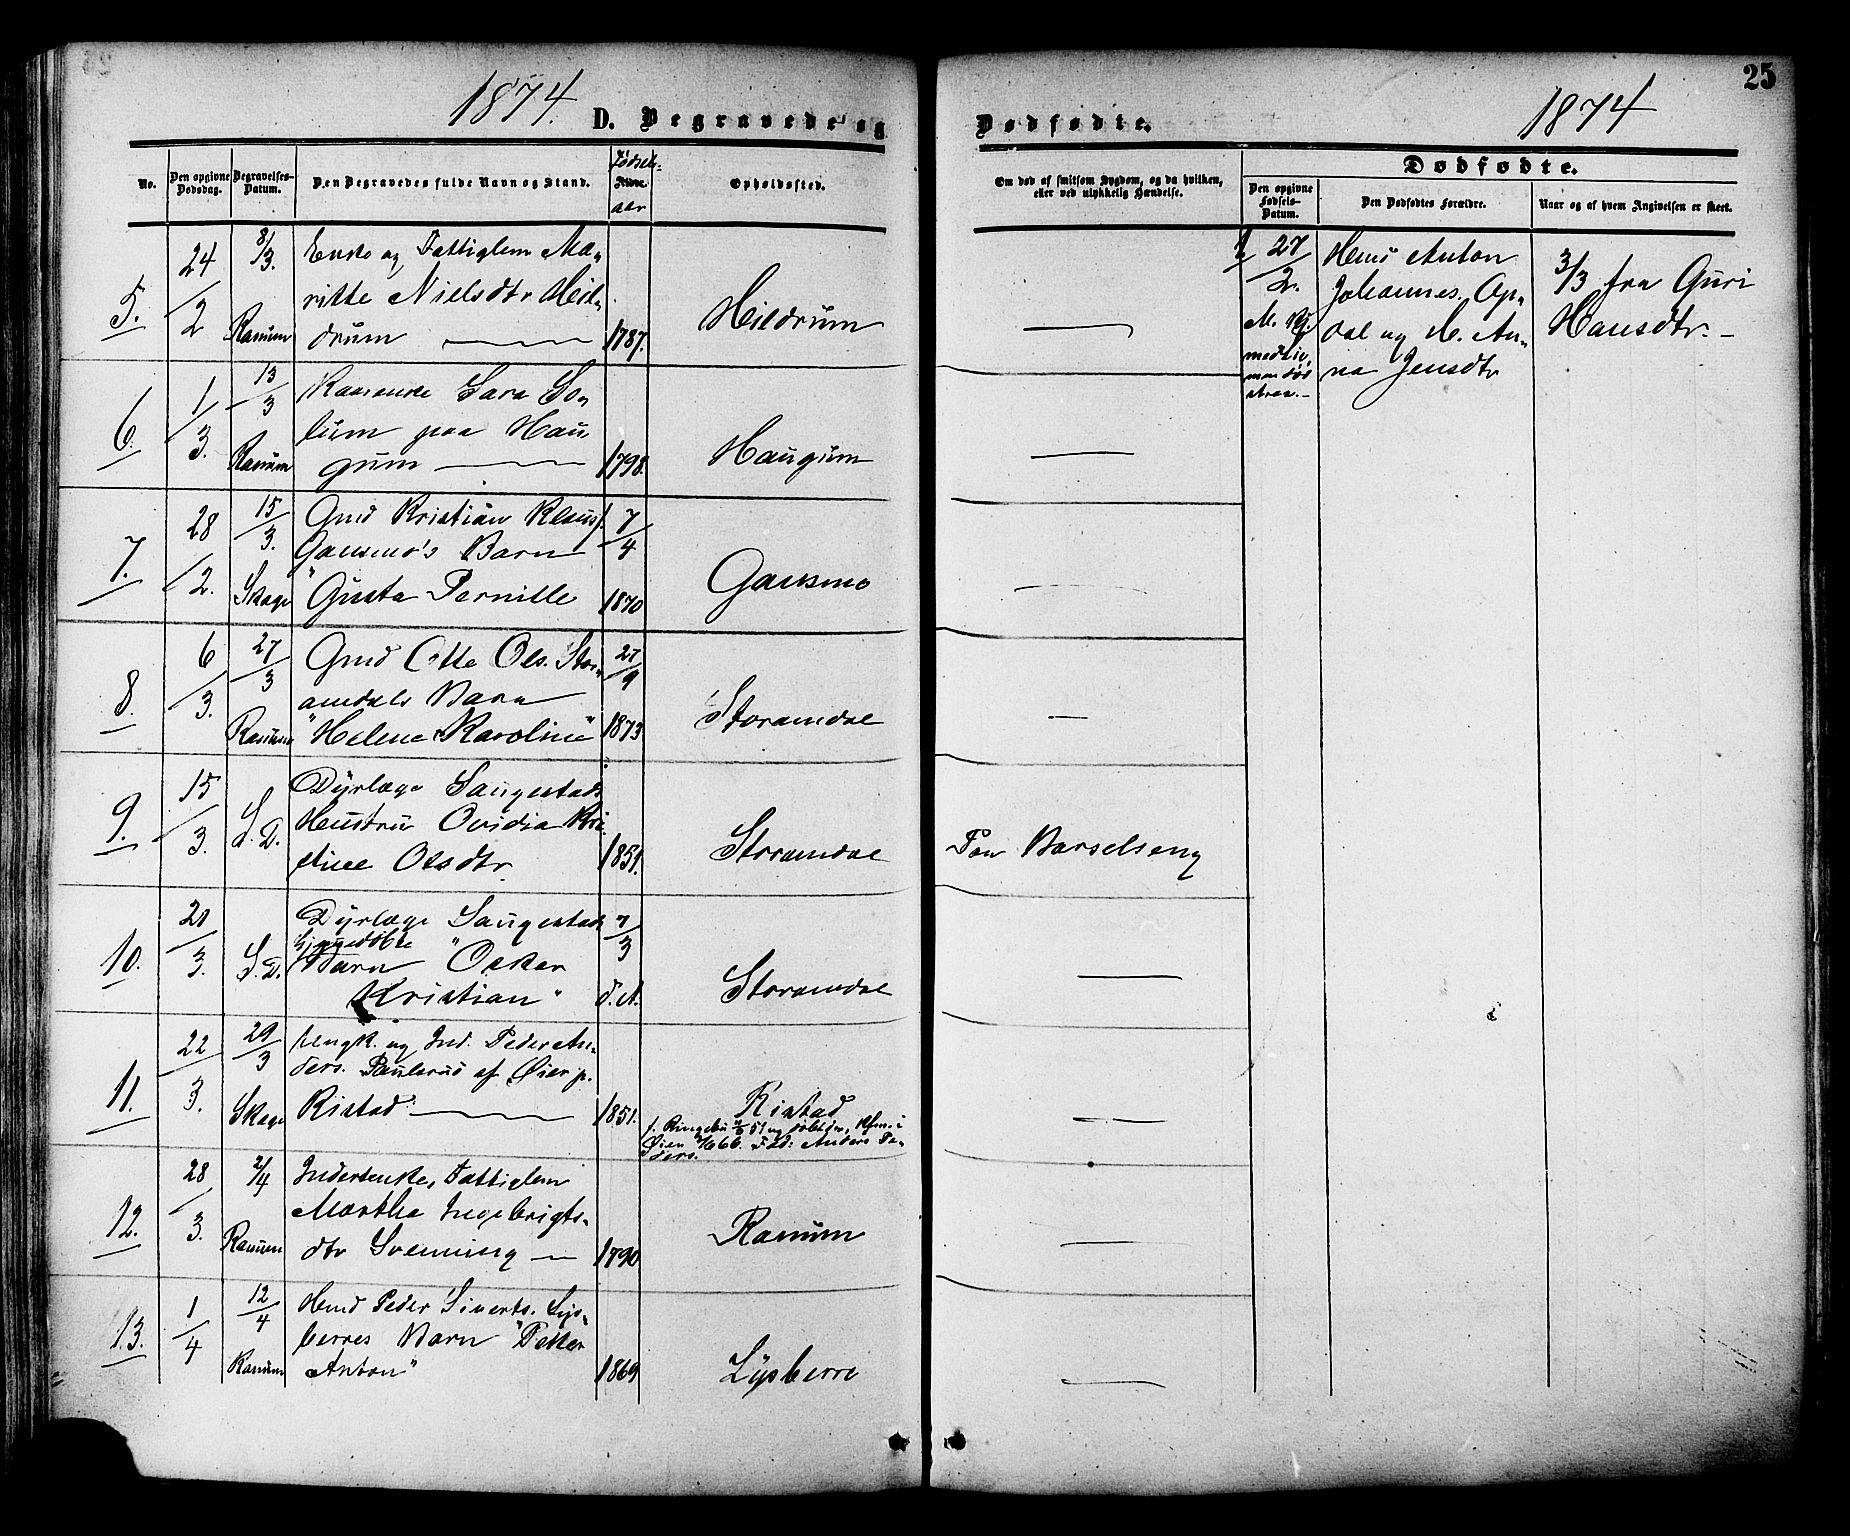 1874.
D. Begravede og
Dødfødte.
1874
25
No.
Den opgivne Dødsdag.
Begravelses-Datum.
Den Begravedes fulde Navn og Stand.
Fødsels-
aar
Opholdssted.
Om død af smitsom Sygdom, og da hvilken,
eller ved ulykkelig Hændelse.
Dødfødte.
Den opgivne Fødsels-Datum.
Den Dødfødtes Forældre.
Naar og af hvem Angivelsen er skeet.
5.
24/2
8/3.
Ranum
Enke og Fattiglem Ma-
ritte Nielsdtr Hil-
drum
1787.
Hildrum
1
27/2.
Hans Anton
Johannes. Op-
dal og M. An-
na Jensdtr
3/3 fra Guri
Hansdtr.
6.
1/3.
13/3
Ranum
Sara So-
lum paa Hau
gum
1798.
Haugum
7.
28/2.
15/3.
Skage
Gmd Kristian Klaus.
Gansmo's Barn
"Gusta Pernille
7/4
1870
Gansmo
8.
6/3.
27/3
Ranum
Gmd Otte Ols. Stor-
amdals Barn
"Helene Karoline"
27/9
1873
Storamdal
9.
15/3.
S. D.
Dyrlæge Saugestads
Hustru Ovidia Kri
stine Olsdtr.
1851.
Storamdal
Paa Barselseng
10.
20/3.
S. D.
Dyrlæge Saugestads
hjemmedøbte
Barn "Oskar
Kristian"
7/3
d. A.
Storamdal
11.
22/3.
29/3
Skage
Ungk. og Ind. Peder An-
ders. Paulsrud af Øier p.
Ristad
1851.
Ristad
f. Ringebu 51 og døbt der, Kfm. i
Øier 1666. Fad: Anders Pe-
ders.
12.
28/3.
2/4
Ranum
Inderstenke, Fattiglem
Martha Ingebrigts-
dtr Svenning
1790
Ranum
13.
1/4
12/4
Ranum
Hmd Peder Siverts. Lys-
berres Barn "Petter
Anton"
1869
Lysberre